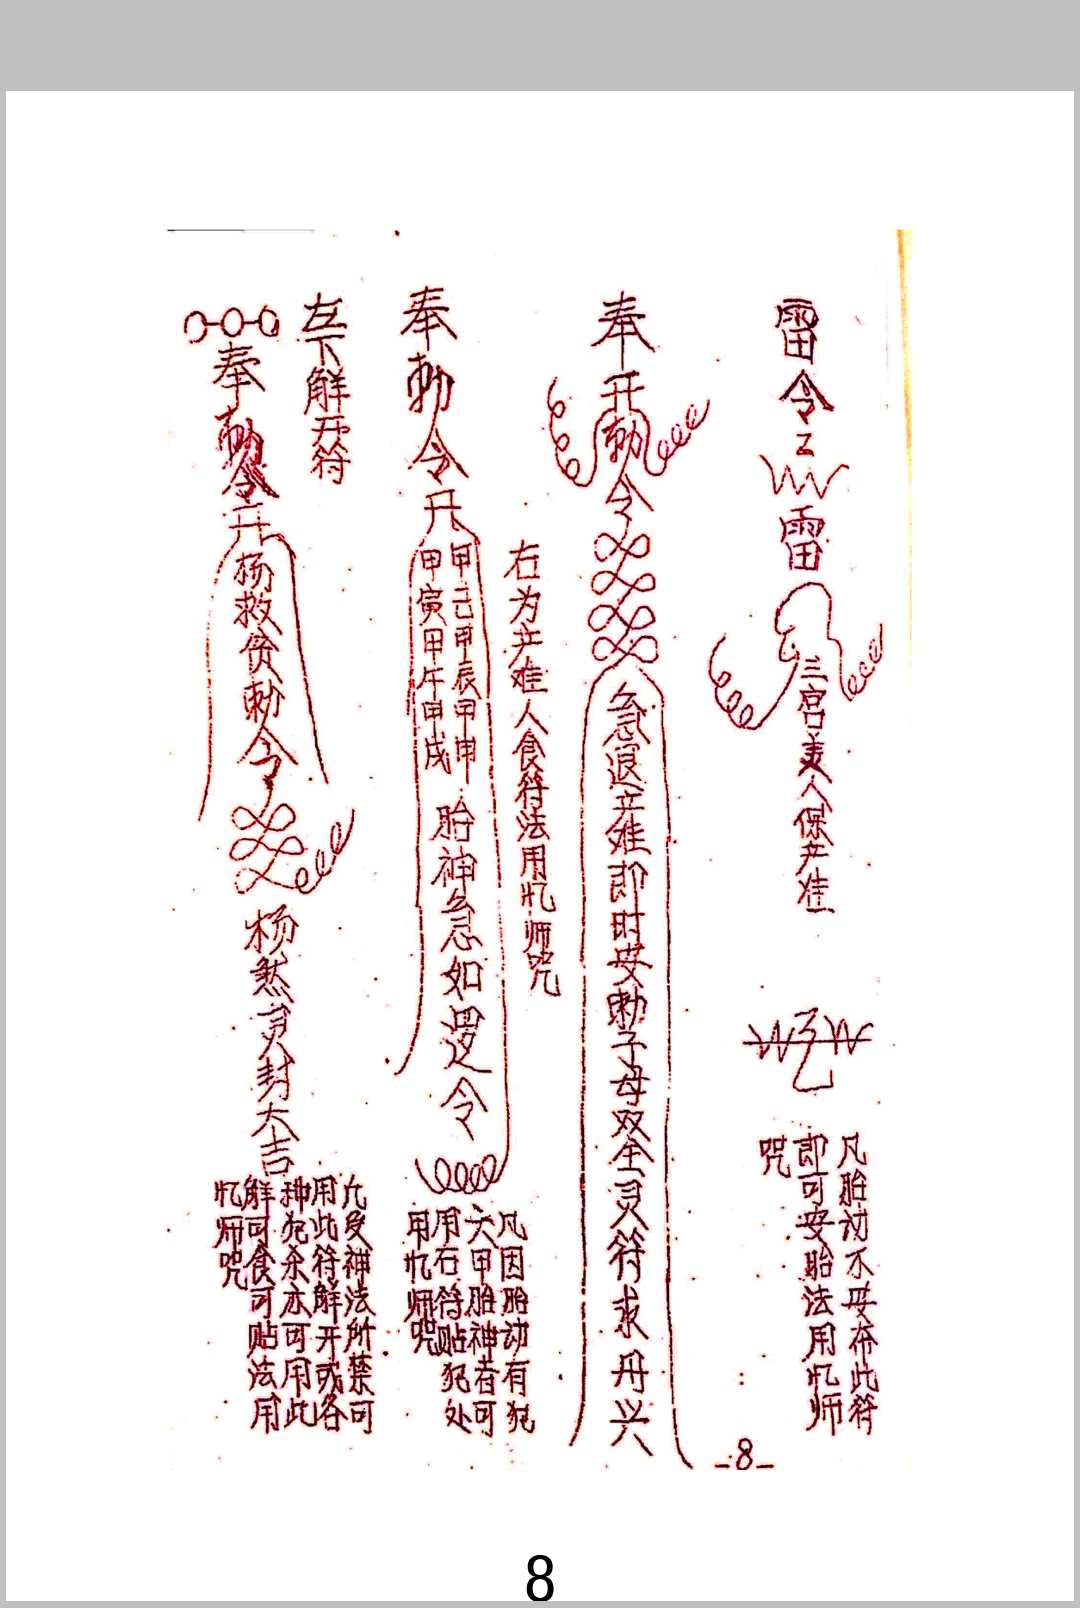 雷令
雷
三宫美人保产难
凡胎动不安佈此符
即可安胎法用忆师
咒
奉
开勅令
急退产难即时安勅子母双全灵符求丹兴
右为产难人食符法用忆师咒
奉勅令开
甲子甲辰甲申
甲寅甲午甲戌
胎神急急如律令
凡因胎动有犯
六甲胎神者可
用石符贴犯处
甲忆师咒
左下解开符
奉勅令开
杨救贫勅令
杨煞灵封大吉
凡受神法所禁可
用此符解开或各
神犯杀亦可用此
解可食可贴法用
忆师咒
-8-
8